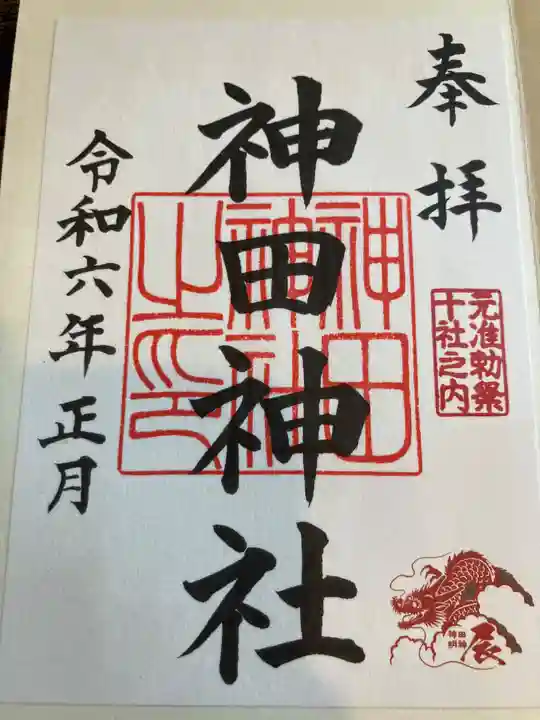 奉拝
元准勅祭
十社之内
神田神社
神田
神社
之印
令和六年正月
辰
神田
明神